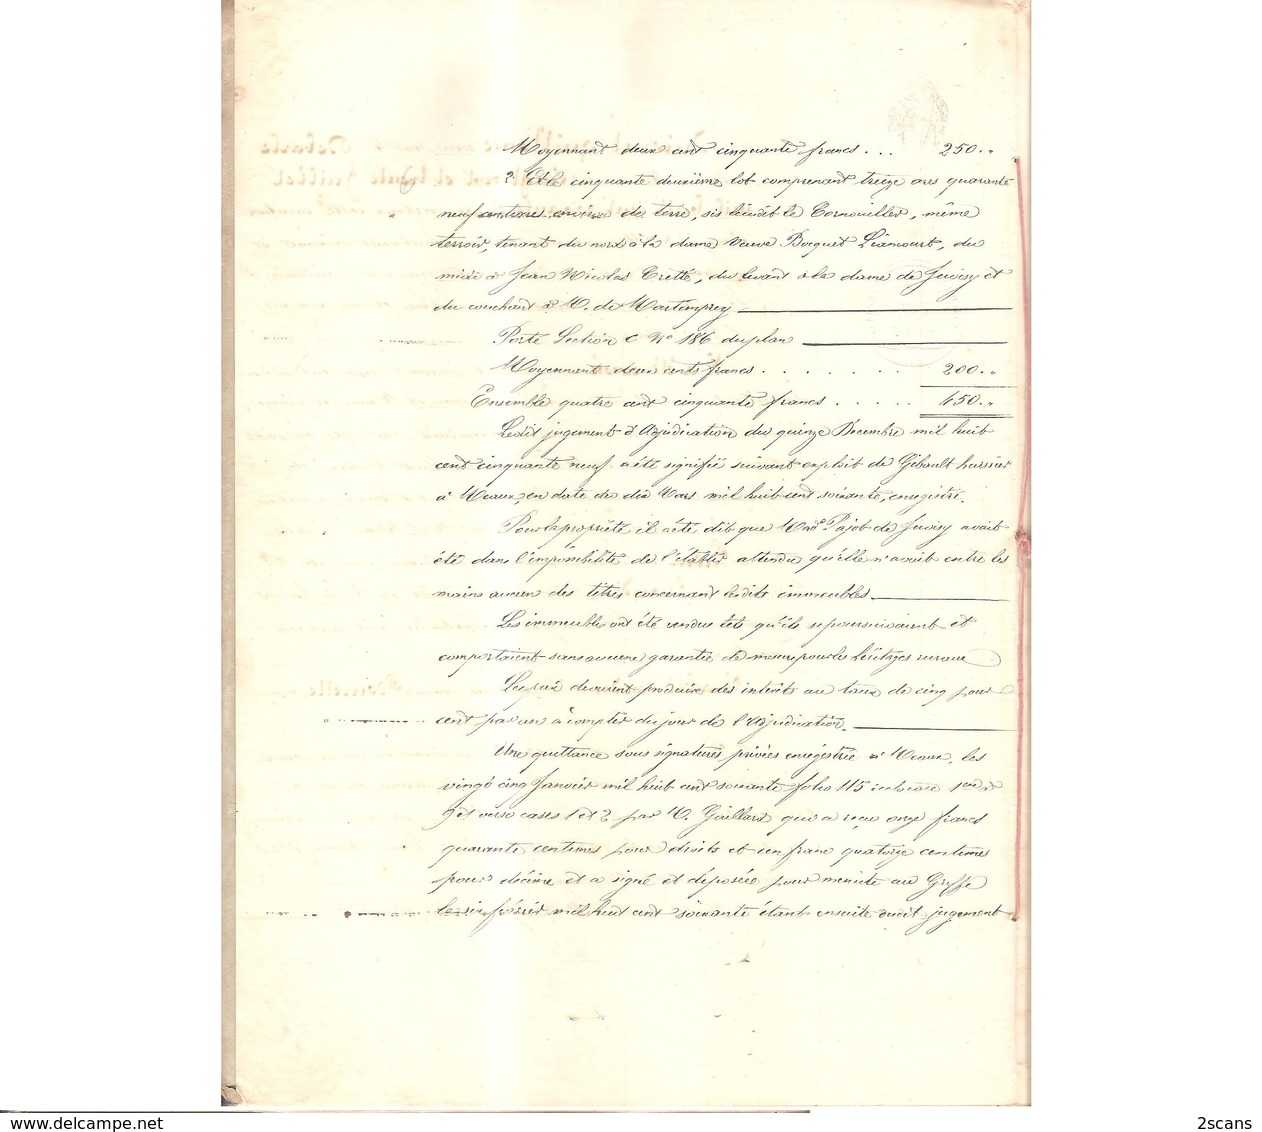 Moyennant deux cent cinquante francs . . . 250. "
2° Et le cinquante deuxième lot comprenant treize ares quarante
neuf centiares environ de terre, sis lieudit le Cornouiller, même
terroir, tenant du nord à la dame Veuve Bocquet Liancourt, du
midi à Jean Nicolas Cretté, du levant à la dame de Juvisy et
du couchant à M. de Martimprey
Porté Section C N° 186 du plan
Moyennant deux cents francs . . . . . . . 200. "
Ensemble quatre cent cinquante francs . . . . . 450. "
Ledit jugement d'adjudication du quinze Décembre mil huit
cent cinquante neuf a été signifié suivant exploit de Gibault huissier
à Meaux, en date du dix Mars mil huit cent soixante, enregistré.
Pour la propriété il a été dit que Mad.e Pajot de Juvisy avait
été dans l'impossibilité de l'établir attendu qu'elle n'avait entre les
mains aucun des titres concernant lesdits immeubles
Les immeubles ont été vendus tels qu'ils se poursuivaient et
comportaient sans aucune garantie de mesure pour les héritages ruraux
Les prix devaient produire des intérêts au taux de cinq pour
cent par an à compter du jour de l'adjudication.
Une quittance sous signatures privées enregistrée à Meaux, les
vingt cinq Janvier mil huit cent soixante folio 115 case 1ere à
9 et verso cases 1 et 2 par M. Gaillard qui a reçu onze francs
quarante centimes pour droits et un franc quatorze centimes
pour décime et a signé et déposée pour minute au Greffe
le six février mil huit cent soixante étant ensuite dudit jugement
2scans